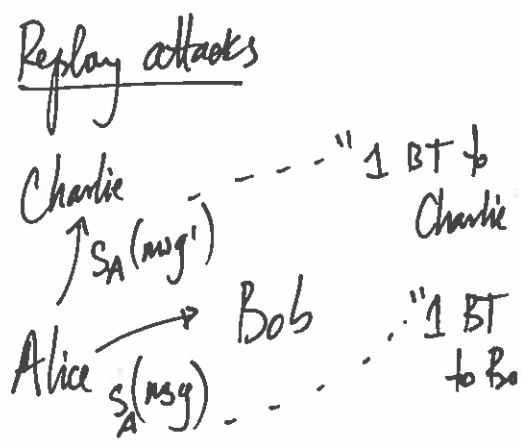 Replay attacks
Charlie
"1 BT to
Charlie
S_A(msg')
Bob
"1 BT
to Bo
Alice
S_A(msg)